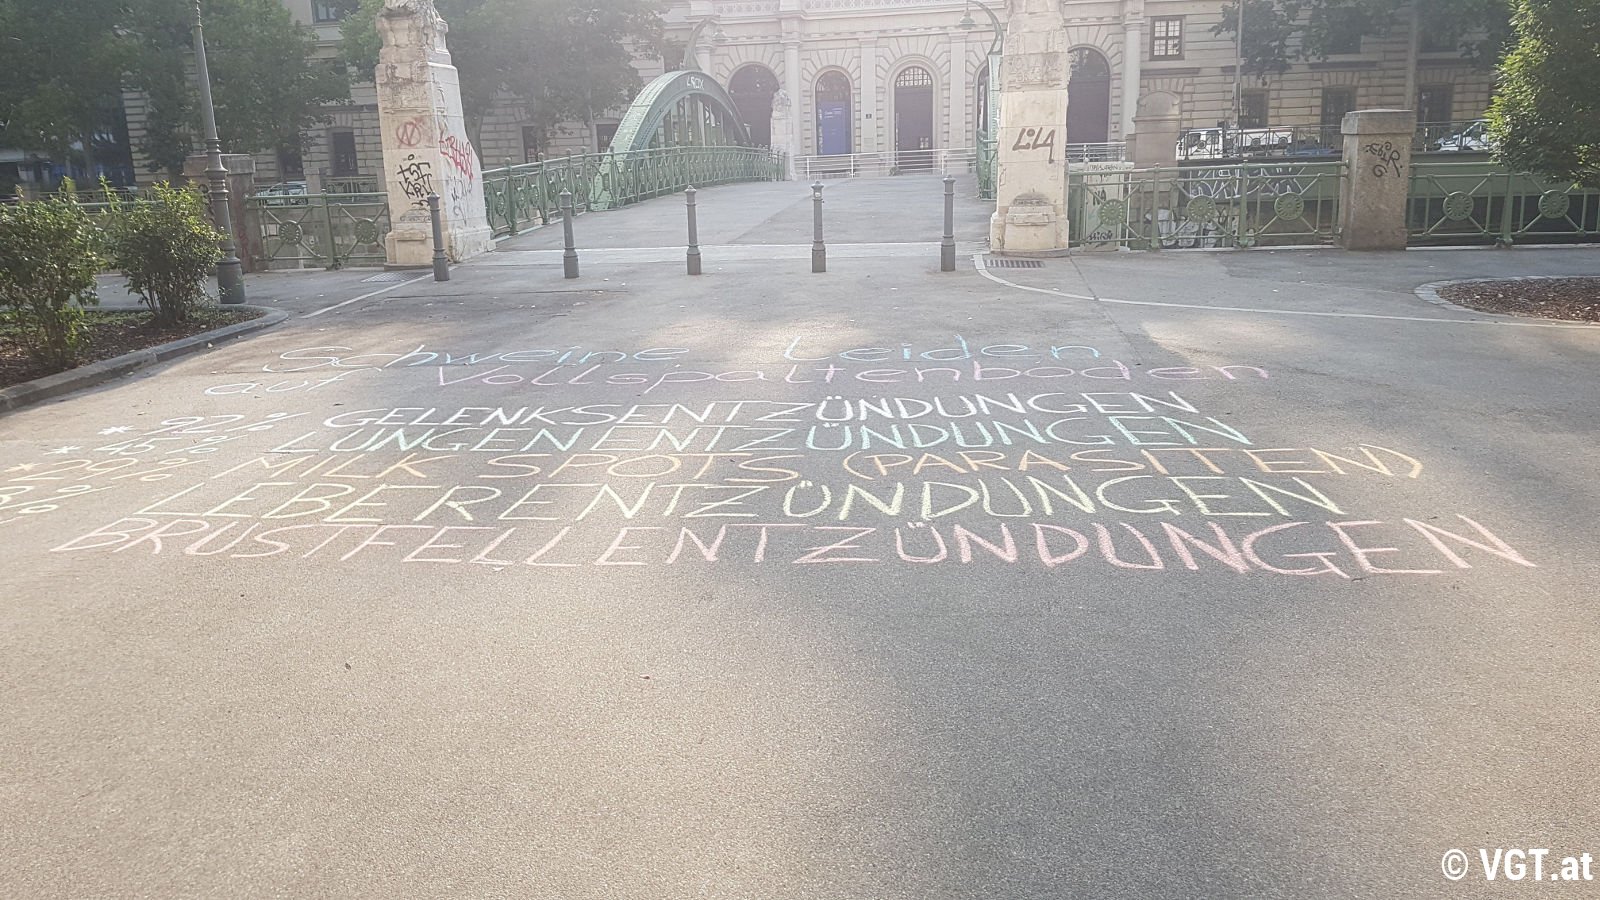 LILA
Schweine Leiden
auf Vollspaltenboden
* 92% GELENKSENTZÜNDUNGEN
* 45% LUNGENENTZÜNDUNGEN
* 29% MILK SPOTS (PARASITEN)
% LEBERENTZÜNDUNGEN
BRUSTFELLENTZÜNDUNGEN
© VGT.at